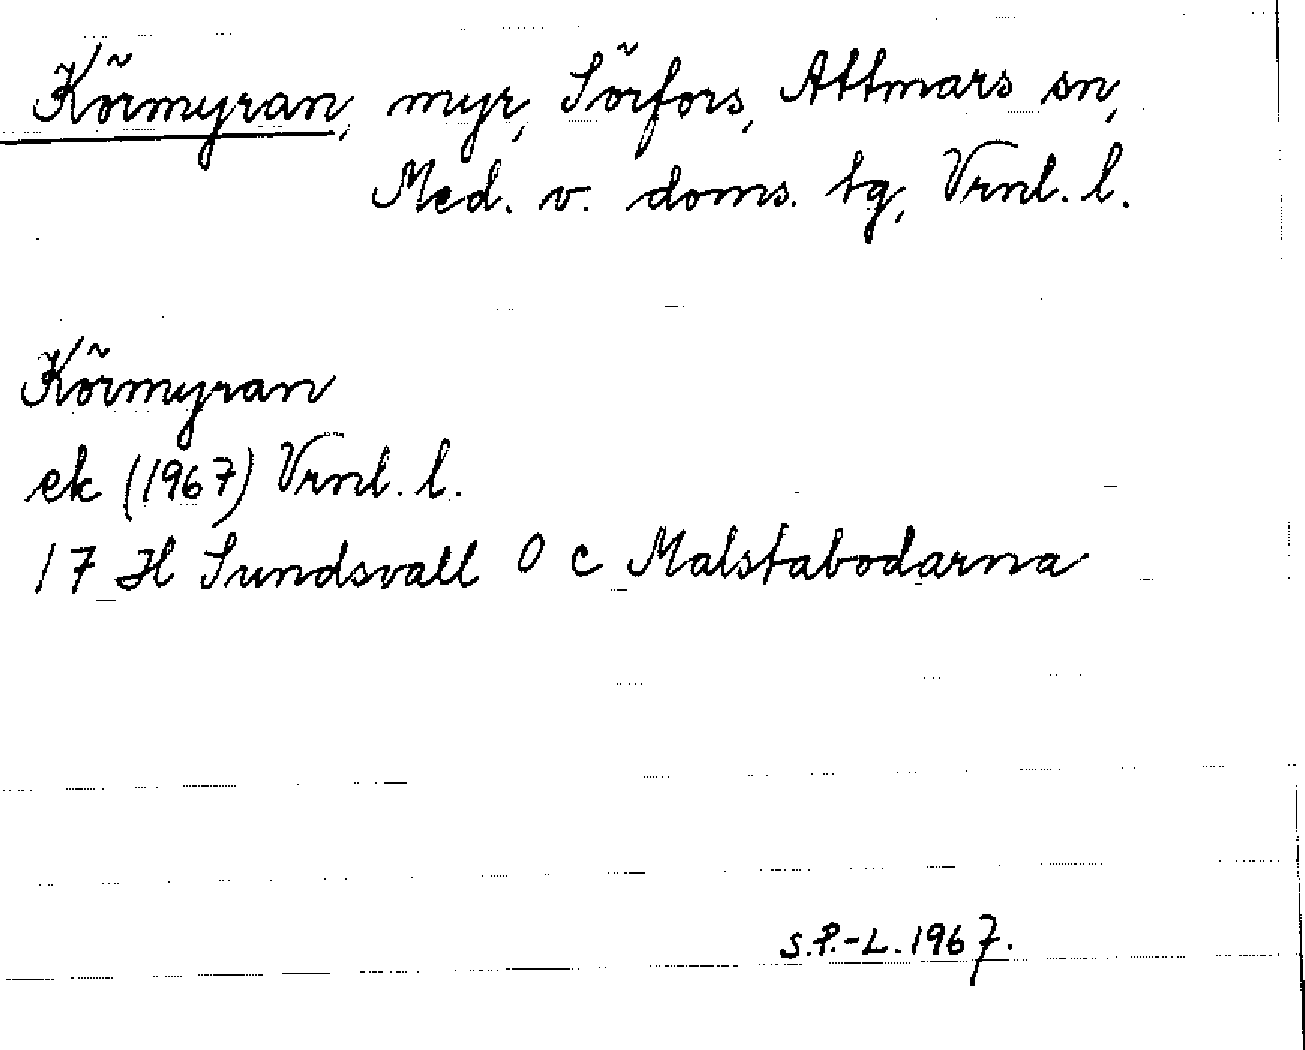 Körmyran, myr, Sörfors, Attmars sn,
Med. v. doms. tg, Vrnl. l.
Körmyran
ek (1967) Vrnl. l.
17 H Sundsvall 0 c Malstabodarna
S.P.-L. 1967.